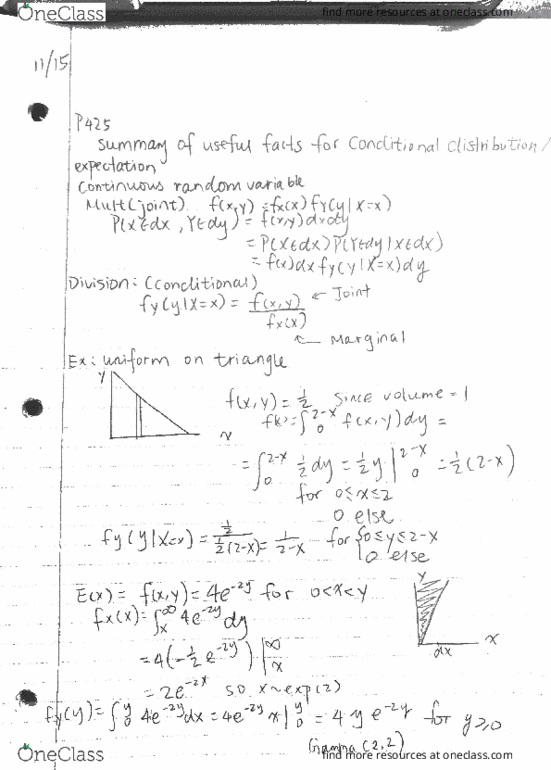 OneClass
find more resources at oneclass.com
11/15
P425
Summary of useful facts for Conditional distribution/
expectation
Continuous random variable
Mult(joint) f(x,y) = fx(x) fy(y|X=x)
P(X∈dx, Y∈dy) = f(x,y)dxdy
= P(X∈dx) P(Y∈dy|X∈dx)
= f(x)dx fy(y|X=x)dy
Division: (conditional)
fy(y|X=x) = f(x,y)/fx(x) ← Joint
← Marginal
Ex: uniform on triangle
y
x
f(x,y) = 1/2 since volume = 1
f(x) = ∫₀^(2-x) f(x,y)dy =
= ∫₀^(2-x) 1/2 dy = 1/2 y |₀^(2-x) = 1/2(2-x)
for 0≤x≤2
0 else
fy(y|X=x) = (1/2)/(1/2(2-x)) = 1/(2-x) for {0≤y≤2-x
0 else
E(x) = f(x,y) = 4e^(-2y) for 0<x<y
fx(x) = ∫ₓ^∞ 4e^(-2y) dy
y
x
dx
= 4(-1/2 e^(-2y)) |ₓ^∞
= 2e^(-2x) so x~exp(2)
fy(y) = ∫₀^y 4e^(-2y)dx = 4e^(-2y) x |₀^y = 4 y e^(-2y) for y≥0
Gamma (2,2)
OneClass
find more resources at oneclass.com